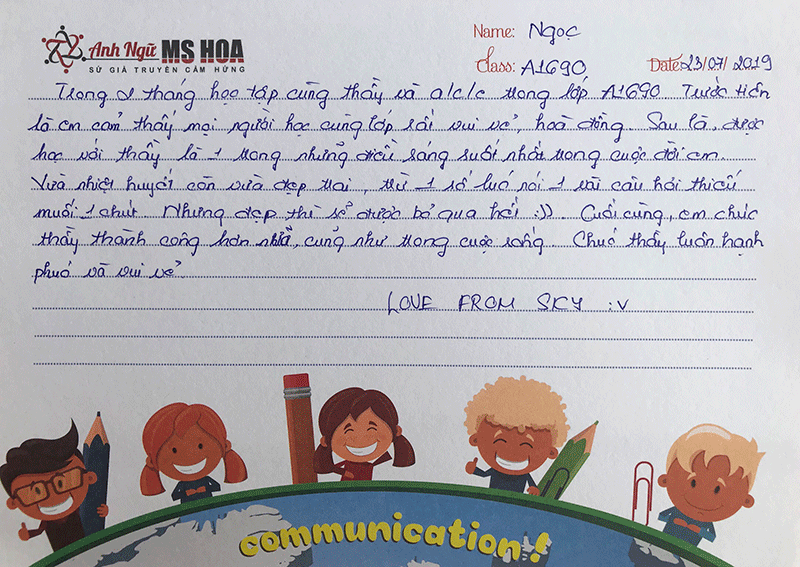 Anh Ngữ MS HOA
SỨ GIẢ TRUYỀN CẢM HỨNG
Name: Ngọc
Class: A1690
Date: 23/07/2019
Trong 2 tháng học tập cùng thầy và a/c/e trong lớp A1690. Trước tiên
là em cảm thấy mọi người học cùng lớp rất vui vẻ, hoà đồng. Sau là, được
học với thầy là 1 trong những điều sáng suốt nhất trong cuộc đời em.
Vừa nhiệt huyết còn vừa đẹp trai, trừ 1 số lúc nói 1 vài câu hơi thiếu
muối 1 chút. Nhưng đẹp thì sẽ được bỏ qua hết :)). Cuối cùng, em chúc
thầy thành công hơn nữa, cũng như trong cuộc sống. Chúc thầy luôn hạnh
phúc và vui vẻ.
LOVE FROM SKY :v
communication!